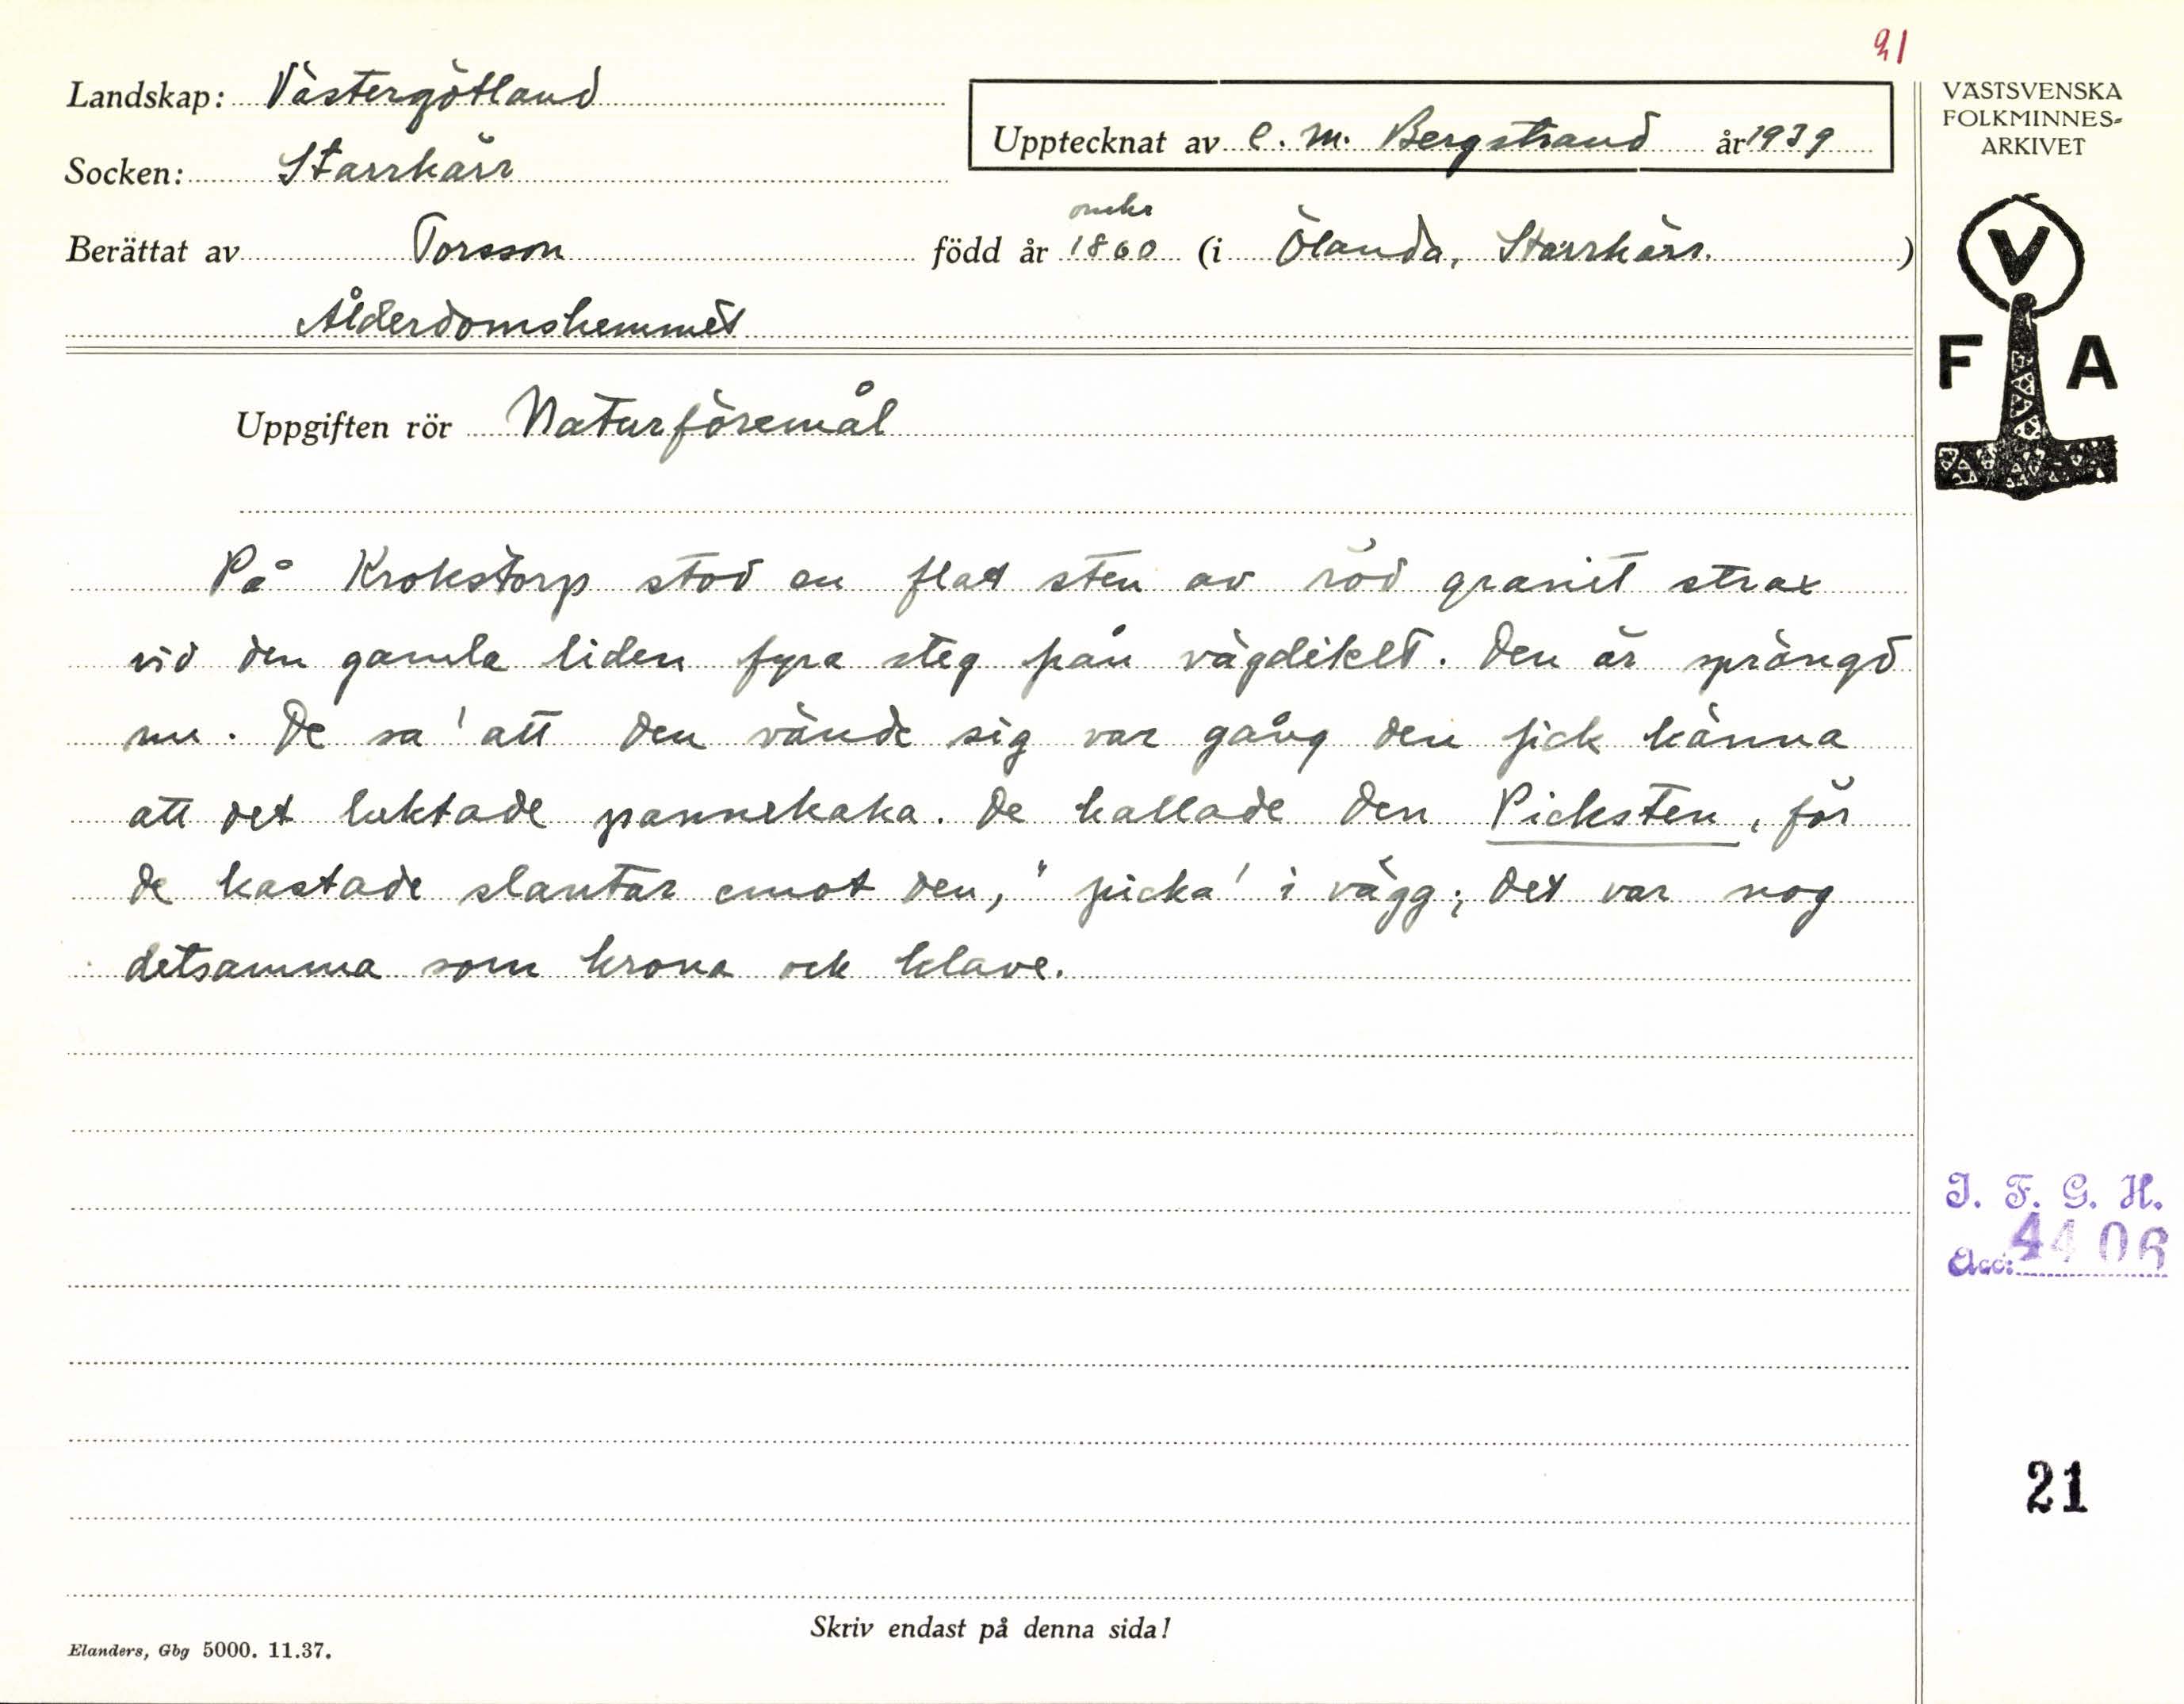 21
Landskap: Västergötland
Upptecknat av C. M. Bergstrand år 1939
Socken: Starrkärr
omkr
Berättat av Torsson född år 1860 (i Ölanda, Starrkärr.)
Ålderdomshemmet
Uppgiften rör Naturföremål
På Krokstorp stod en flat sten av röd granit strax
vid den gamla liden fyra steg från vägdiket. Den är sprängd
nu. De sa' att den vände sig var gång den fick känna
att det luktade pannekaka. De kallade den Picksten, för
de kastade slantar emot den, "picka' i vägg; det var nog
detsamma som krona och klave.
Skriv endast på denna sida!
Elanders, Gbg 5000. 11.37.
VÄSTSVENSKA
FOLKMINNES-
ARKIVET
V
F A
I. F. G. H.
Acc: 4406
21